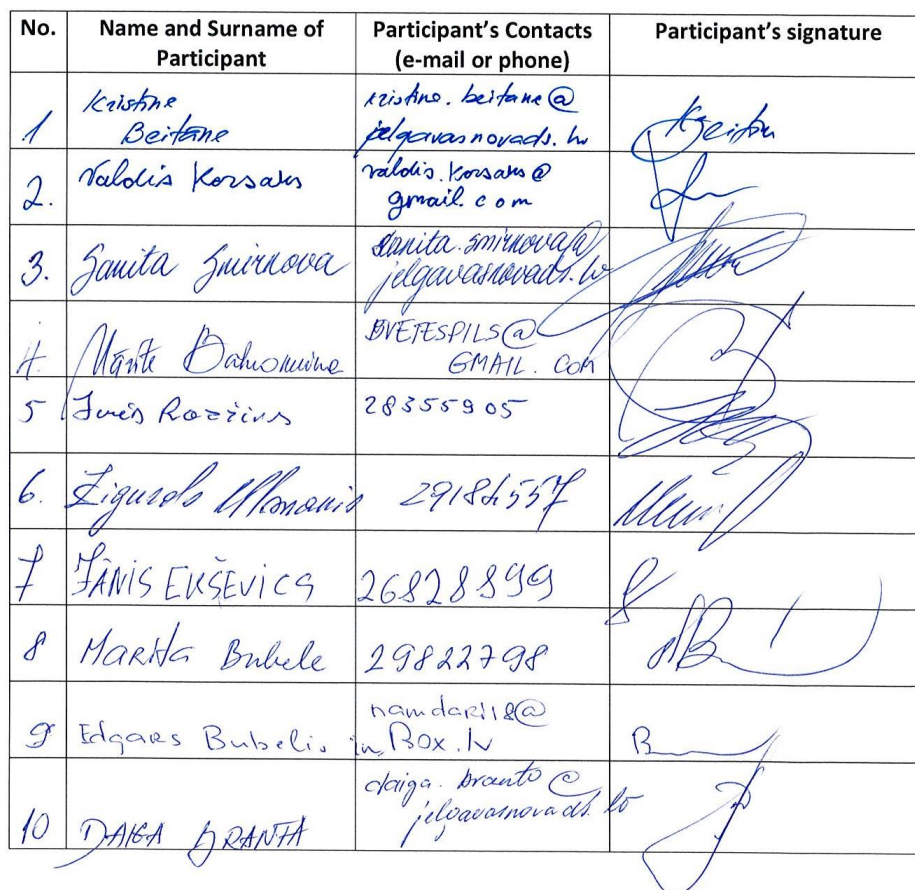 No. Name and Surname of Participant's Contacts Participant's signature
Participant (e-mail or phone)
1 Kristine kristine.beitane@
Beitane jelgavasnovads.lv
2. Valdis Korsaks valdis.korsaks@
gmail.com
3. Sanita Smirnova sanita.smirnova@
jelgavasnovads.lv
4. Mārīte SVETESPILS@
GMAIL.COM
5 Juris 28355905
6. Zigurds Ulmanis 29184557
7 JĀNIS EKŠEVICS 26828899
8 Marita Bubele 29822798
9 Edgars Bubelis namdari18@
inbox.lv
10 DAIGA BRANTA daiga.branta@
jelgavasnovads.lv